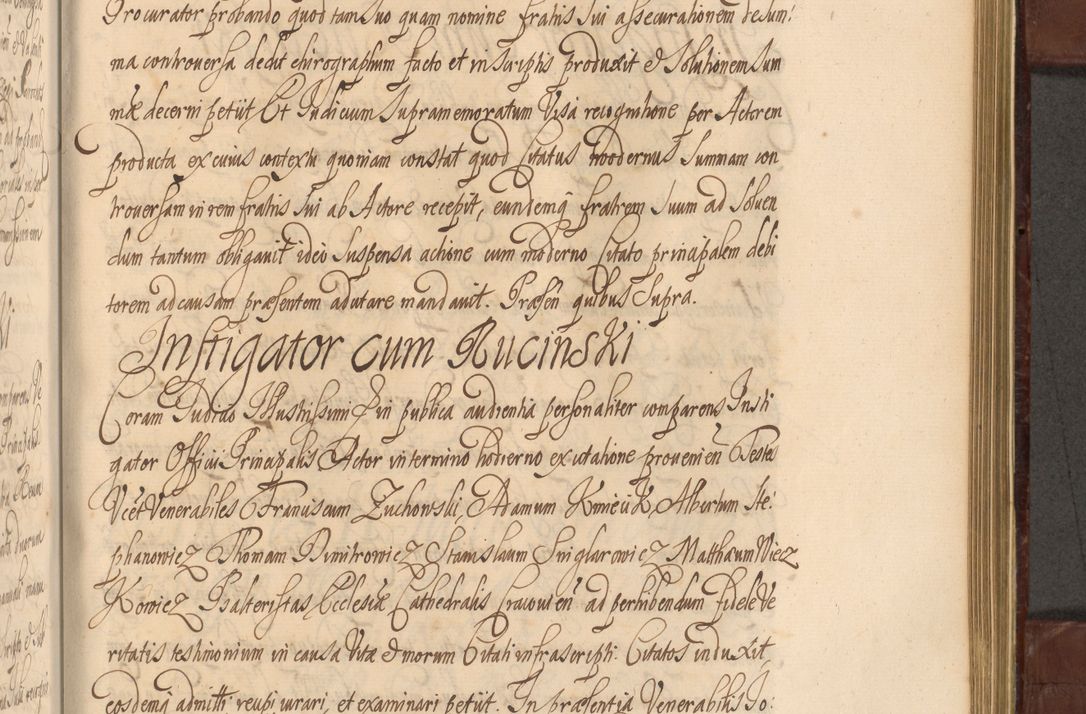 Procurator probando quod tam suo quam nomine fratris sui assecurationem de sum:
ma controversa dedit chirographum facto et in scriptis produxit & solutionem sum
mæ decerni petiit Et Judicium supramemoratum Visa recognitione per Actorem
producta ex cuius contextu quoniam constat quod Citatus modernus summam con
troversam in rem fratris sui ab Actore recepit, eundemq fratrem suum ad solven
dum tantum obligavit ideo suspensa actione cum moderno Citato principalem debi
torem ad causam præsentem adcitare mandavit. Præsen quibus supra.
Instigator cum Rucinski
Coram Judicio Illustrissimi & in publica audientia personaliter comparens Insti
gator Officii Principalis Actor in termino hodierno ex citatione provenien Testes
Vcet Venerabiles Franciscum Zuchowski, Adamum Kmiecik, Albertum Ste:
phanowicz Thomam Dimitrowicz Stanislaum Sniglarowicz Matthæum Wiecz
Kowicz Psalteristas Ecclesiæ Cathedralis Cracovien ad perhibendum fidele Ve
ritatis testimonium in causa Vitæ & morum Citati infrascripti Citatos induxit
eosdemq admitti recipi iurari, et examinari petiit. In præsentia Venerabilis Jo: